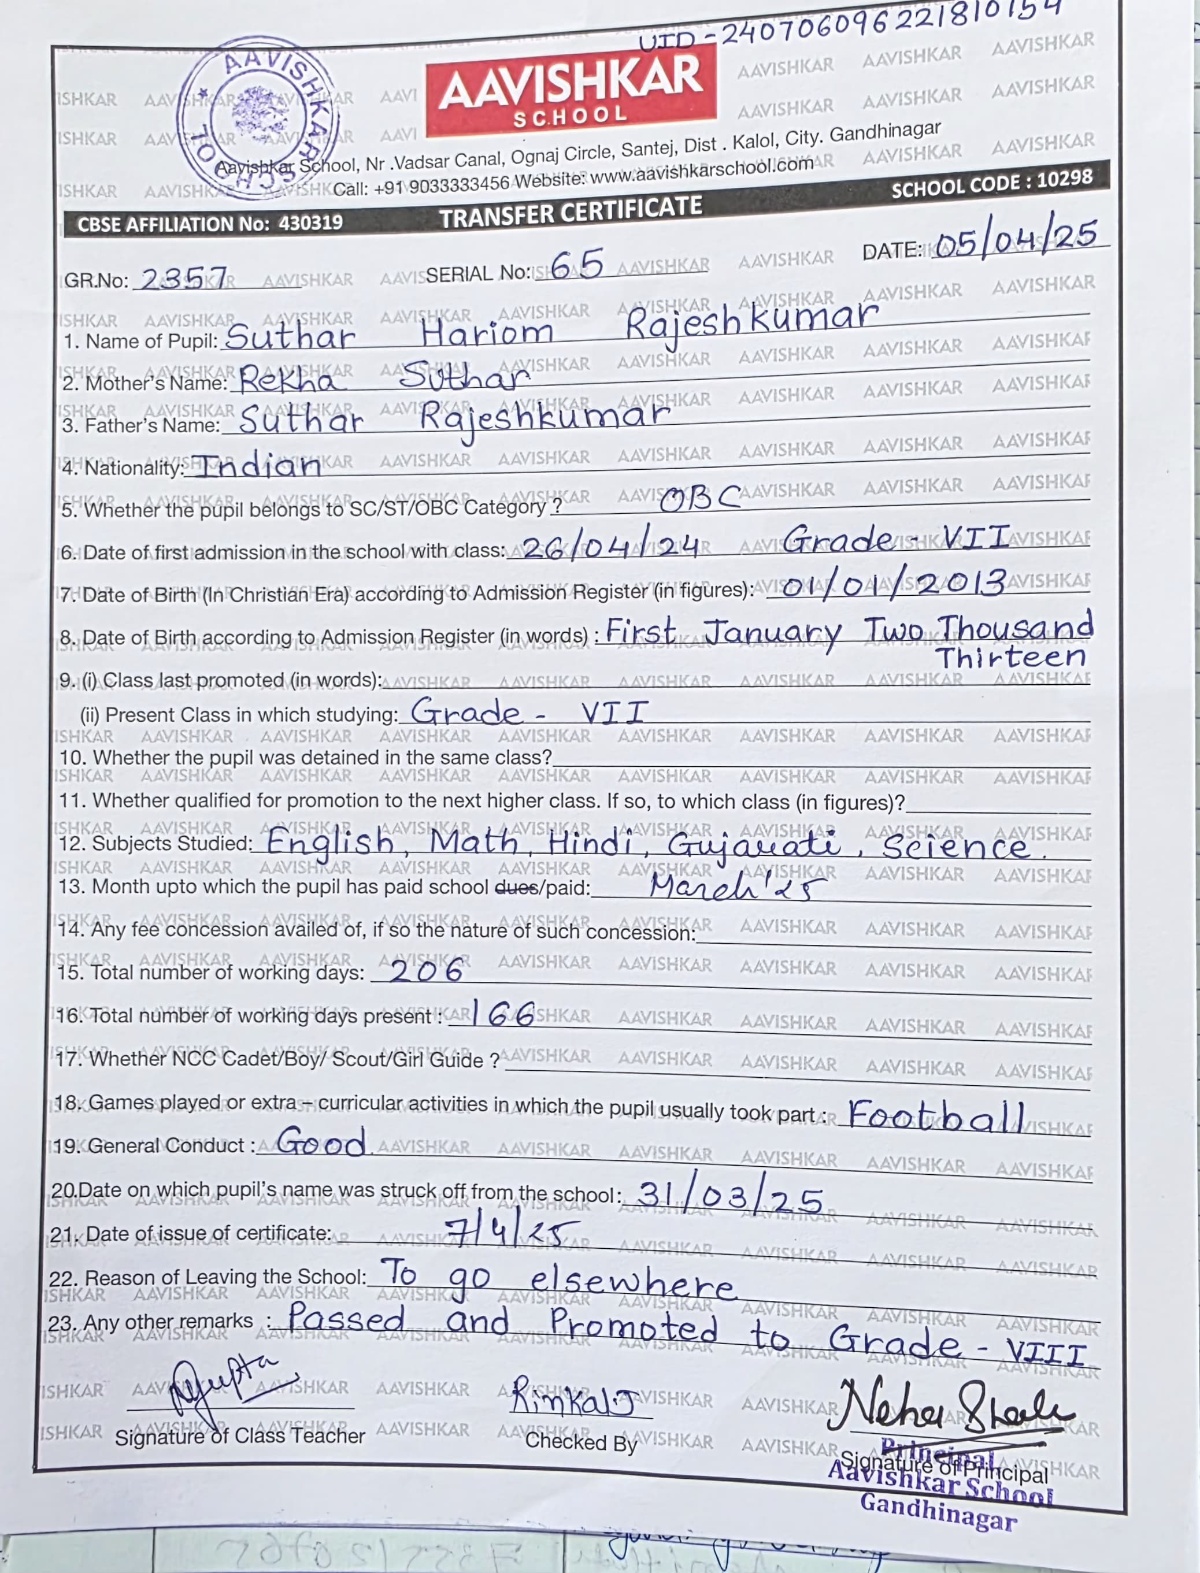 UID-240706096221810154
AAVISHKAR SCHOOL
AAVISHKAR
SCHOOL
Aavishkar School, Nr .Vadsar Canal, Ognaj Circle, Santej, Dist . Kalol, City. Gandhinagar
Call: +91 9033333456 Website: www.aavishkarschool.com
CBSE AFFILIATION No: 430319 TRANSFER CERTIFICATE SCHOOL CODE : 10298
GR.No: 2357 SERIAL No: 65 DATE: 05/04/25
1. Name of Pupil: Suthar Hariom Rajeshkumar
2. Mother's Name: Rekha Suthar
3. Father's Name: Suthar Rajeshkumar
4. Nationality: Indian
5. Whether the pupil belongs to SC/ST/OBC Category ? OBC
6. Date of first admission in the school with class: 26/04/24 Grade - VII
7. Date of Birth (In Christian Era) according to Admission Register (in figures): 01/01/2013
8. Date of Birth according to Admission Register (in words) : First January Two Thousand
Thirteen
9. (i) Class last promoted (in words):
(ii) Present Class in which studying: Grade - VII
10. Whether the pupil was detained in the same class?
11. Whether qualified for promotion to the next higher class. If so, to which class (in figures)?
12. Subjects Studied: English, Math, Hindi, Gujarati, Science.
13. Month upto which the pupil has paid school dues/paid: March'25
14. Any fee concession availed of, if so the nature of such concession:
15. Total number of working days: 206
16. Total number of working days present : 166
17. Whether NCC Cadet/Boy/ Scout/Girl Guide ?
18. Games played or extra – curricular activities in which the pupil usually took part : Football
19. General Conduct : Good
20.Date on which pupil's name was struck off from the school: 31/03/25
21. Date of issue of certificate: 7/4/25
22. Reason of Leaving the School: To go elsewhere
23. Any other remarks : Passed and Promoted to Grade - VIII
Rinkal J
Signature of Class Teacher Checked By Signature of Principal
Principal
Aavishkar School
Gandhinagar